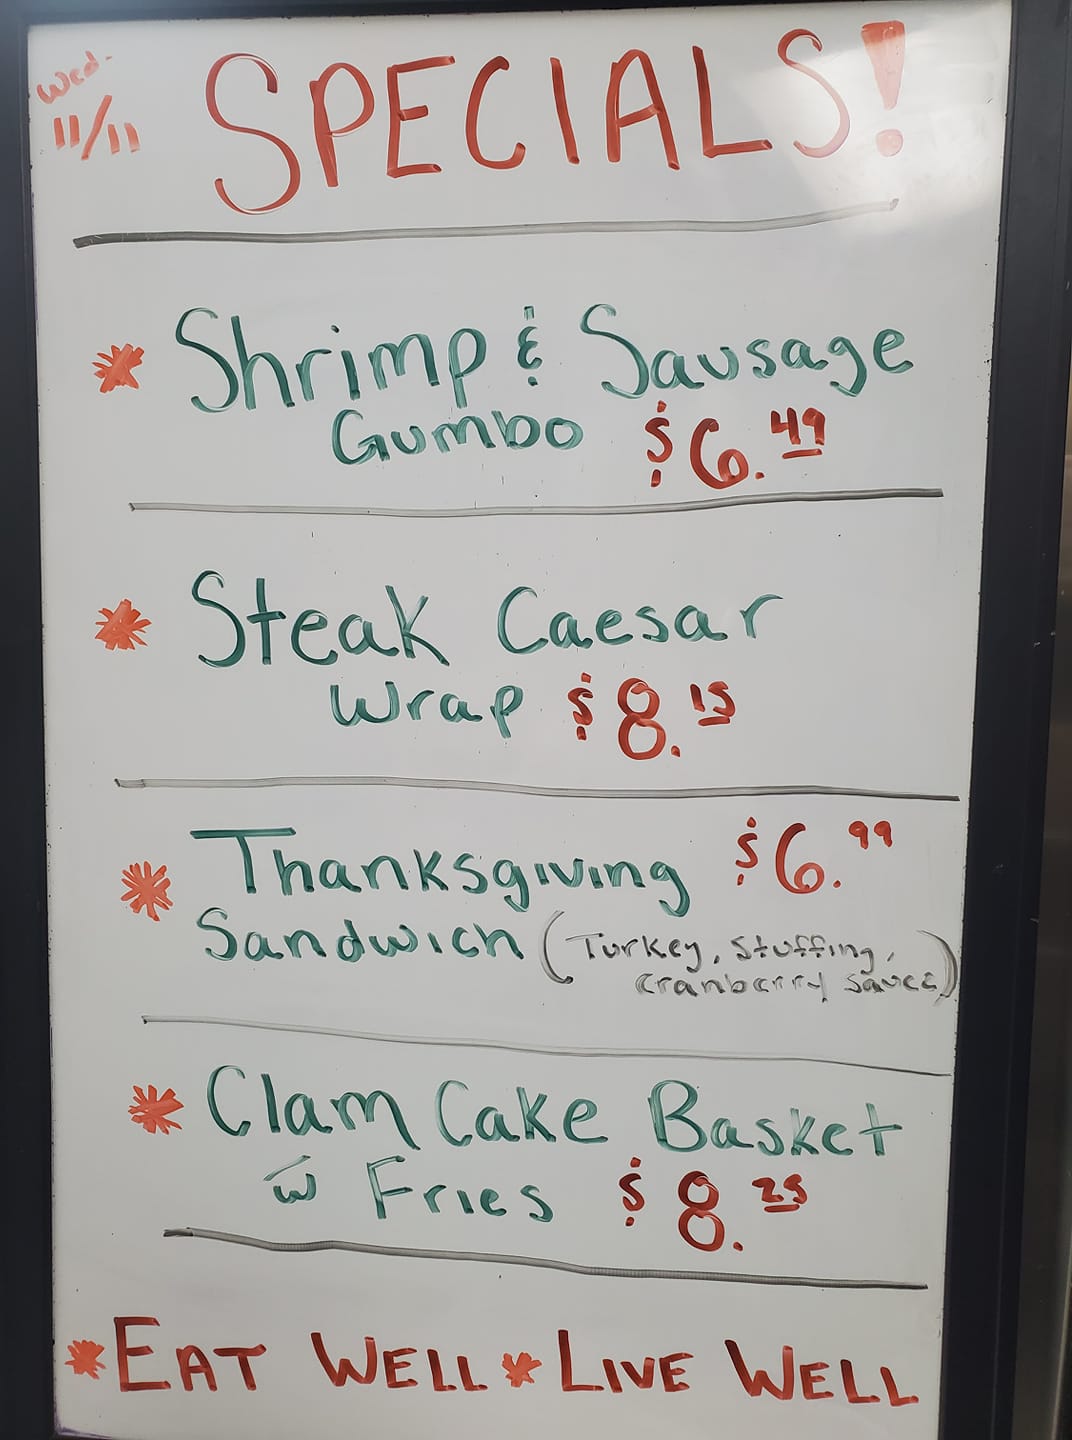 Wed.
11/11
SPECIALS!
* Shrimp & Sausage
Gumbo $6.49
* Steak Caesar
Wrap $8.15
* Thanksgiving $6.99
Sandwich (Turkey, Stuffing,
cranberry sauce)
* Clam Cake Basket
w Fries $8.25
* EAT WELL * LIVE WELL